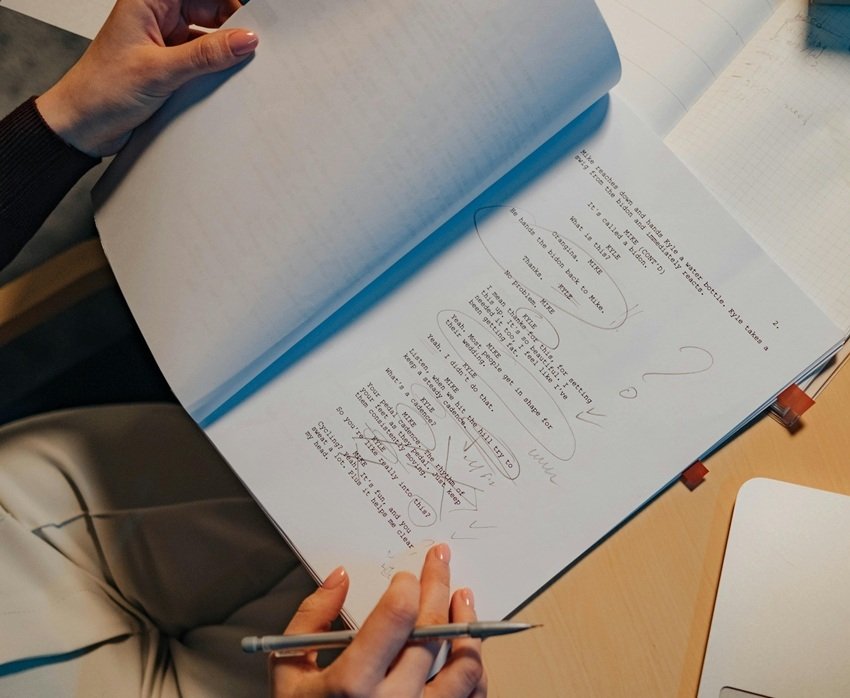 2.
Mike reaches down and hands Kyle a water bottle. Kyle takes a
swig from the bidon and immediately reacts.
MIKE (CONT'D)
It's called a bidon.
KYLE
What is this?
MIKE
Orangina.
He hands the bidon back to Mike.
KYLE
Thanks.
MIKE
No problem.
KYLE
I mean thanks for this, for setting
this up. It's so beautiful. I
needed it too, I feel like I've
been getting fat.
MIKE
Yeah. Most people get in shape for
their wedding.
KYLE
Yeah. I didn't do that.
MIKE
Listen, when we hit the hill try to
keep a steady cadence.
KYLE
What's a cadence?
MIKE
Your pedal cadence. The rhythm of
your feet as they pedal, just keep
them consistently moving.
KYLE
So you're like really into this?
MIKE
Cycling? Yeah. It's fun, and you
sweat a lot. Plus it helps me clear
my head.
?